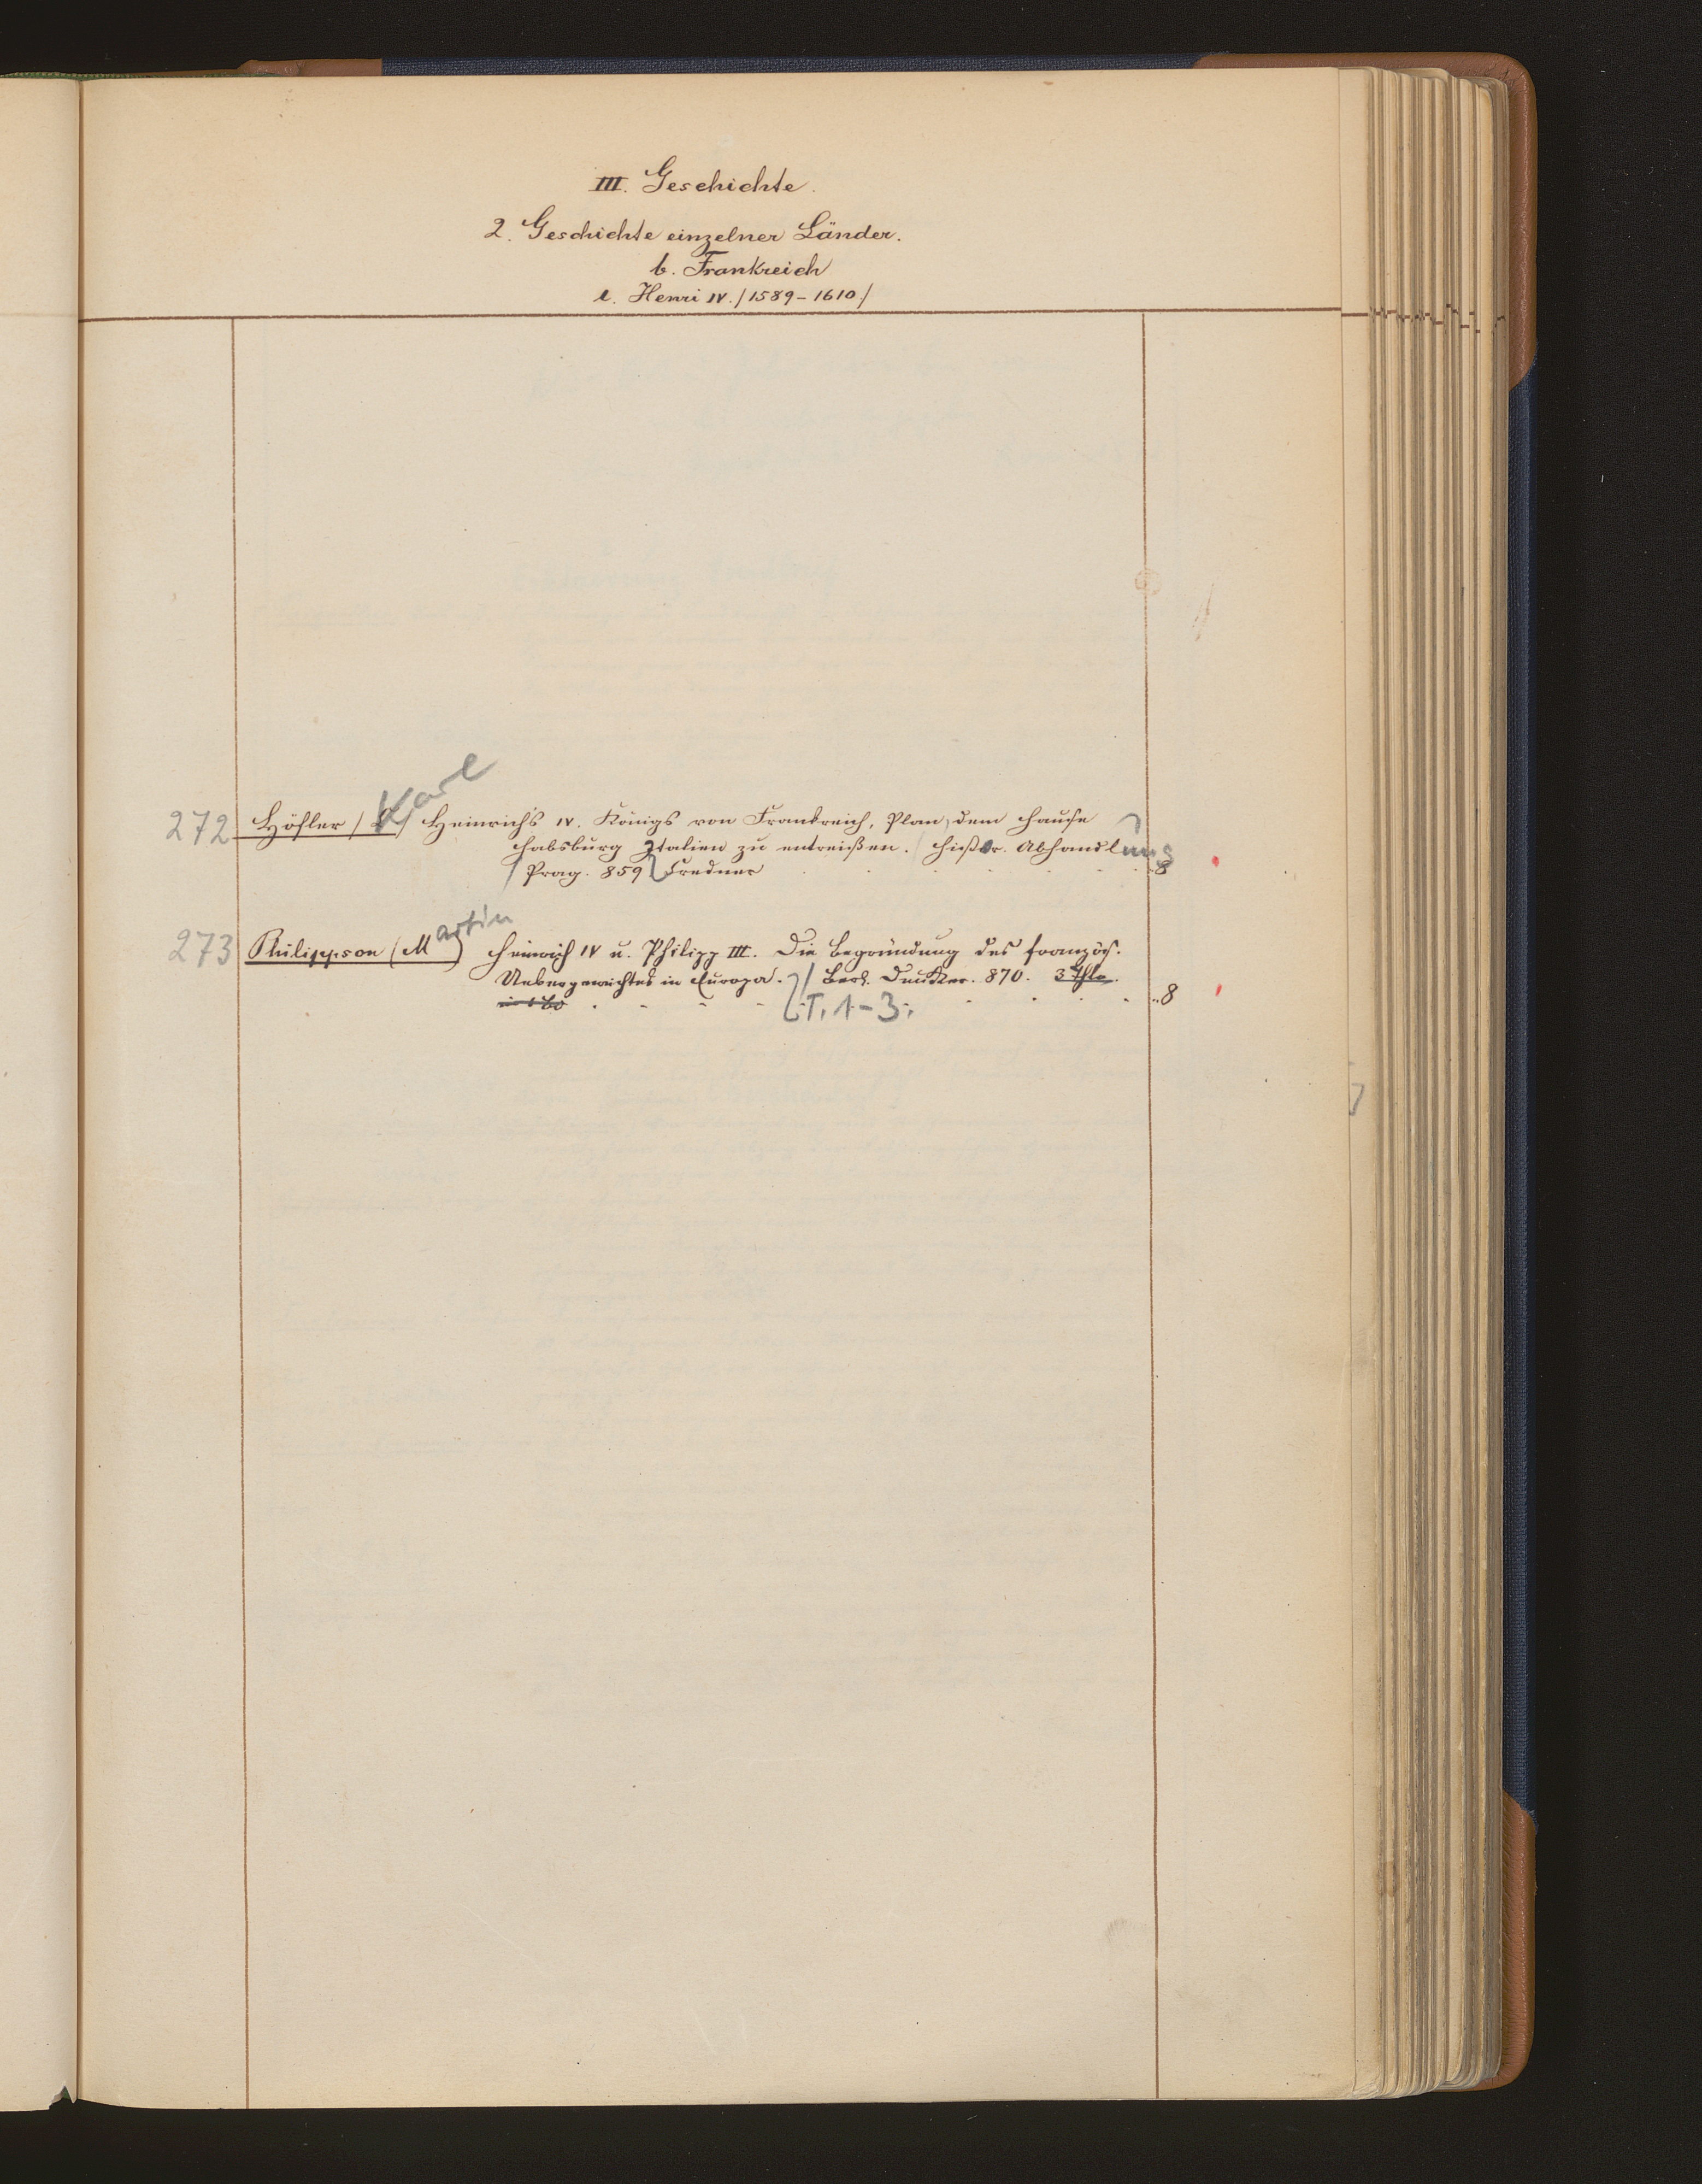 III. Geschichte.
2. Geschichte einzelner Länder.
b. Frankreich
e. Henri IV. /1589–1610/
272 Höfler / Karl / Heinrich's IV. Königs von Frankreich, Plan, dem Hause
Habsburg Italien zu entreißen. / Histor. Abhandlung
/ Prag. 859 Credner 8
273 Philippson (Martin) Heinrich IV u. Philipp III. Die Begründung des französ.
Uebergewichtes in Europa. / Berl. Duncker. 870. 3 Thle.
T. 1–3. 8